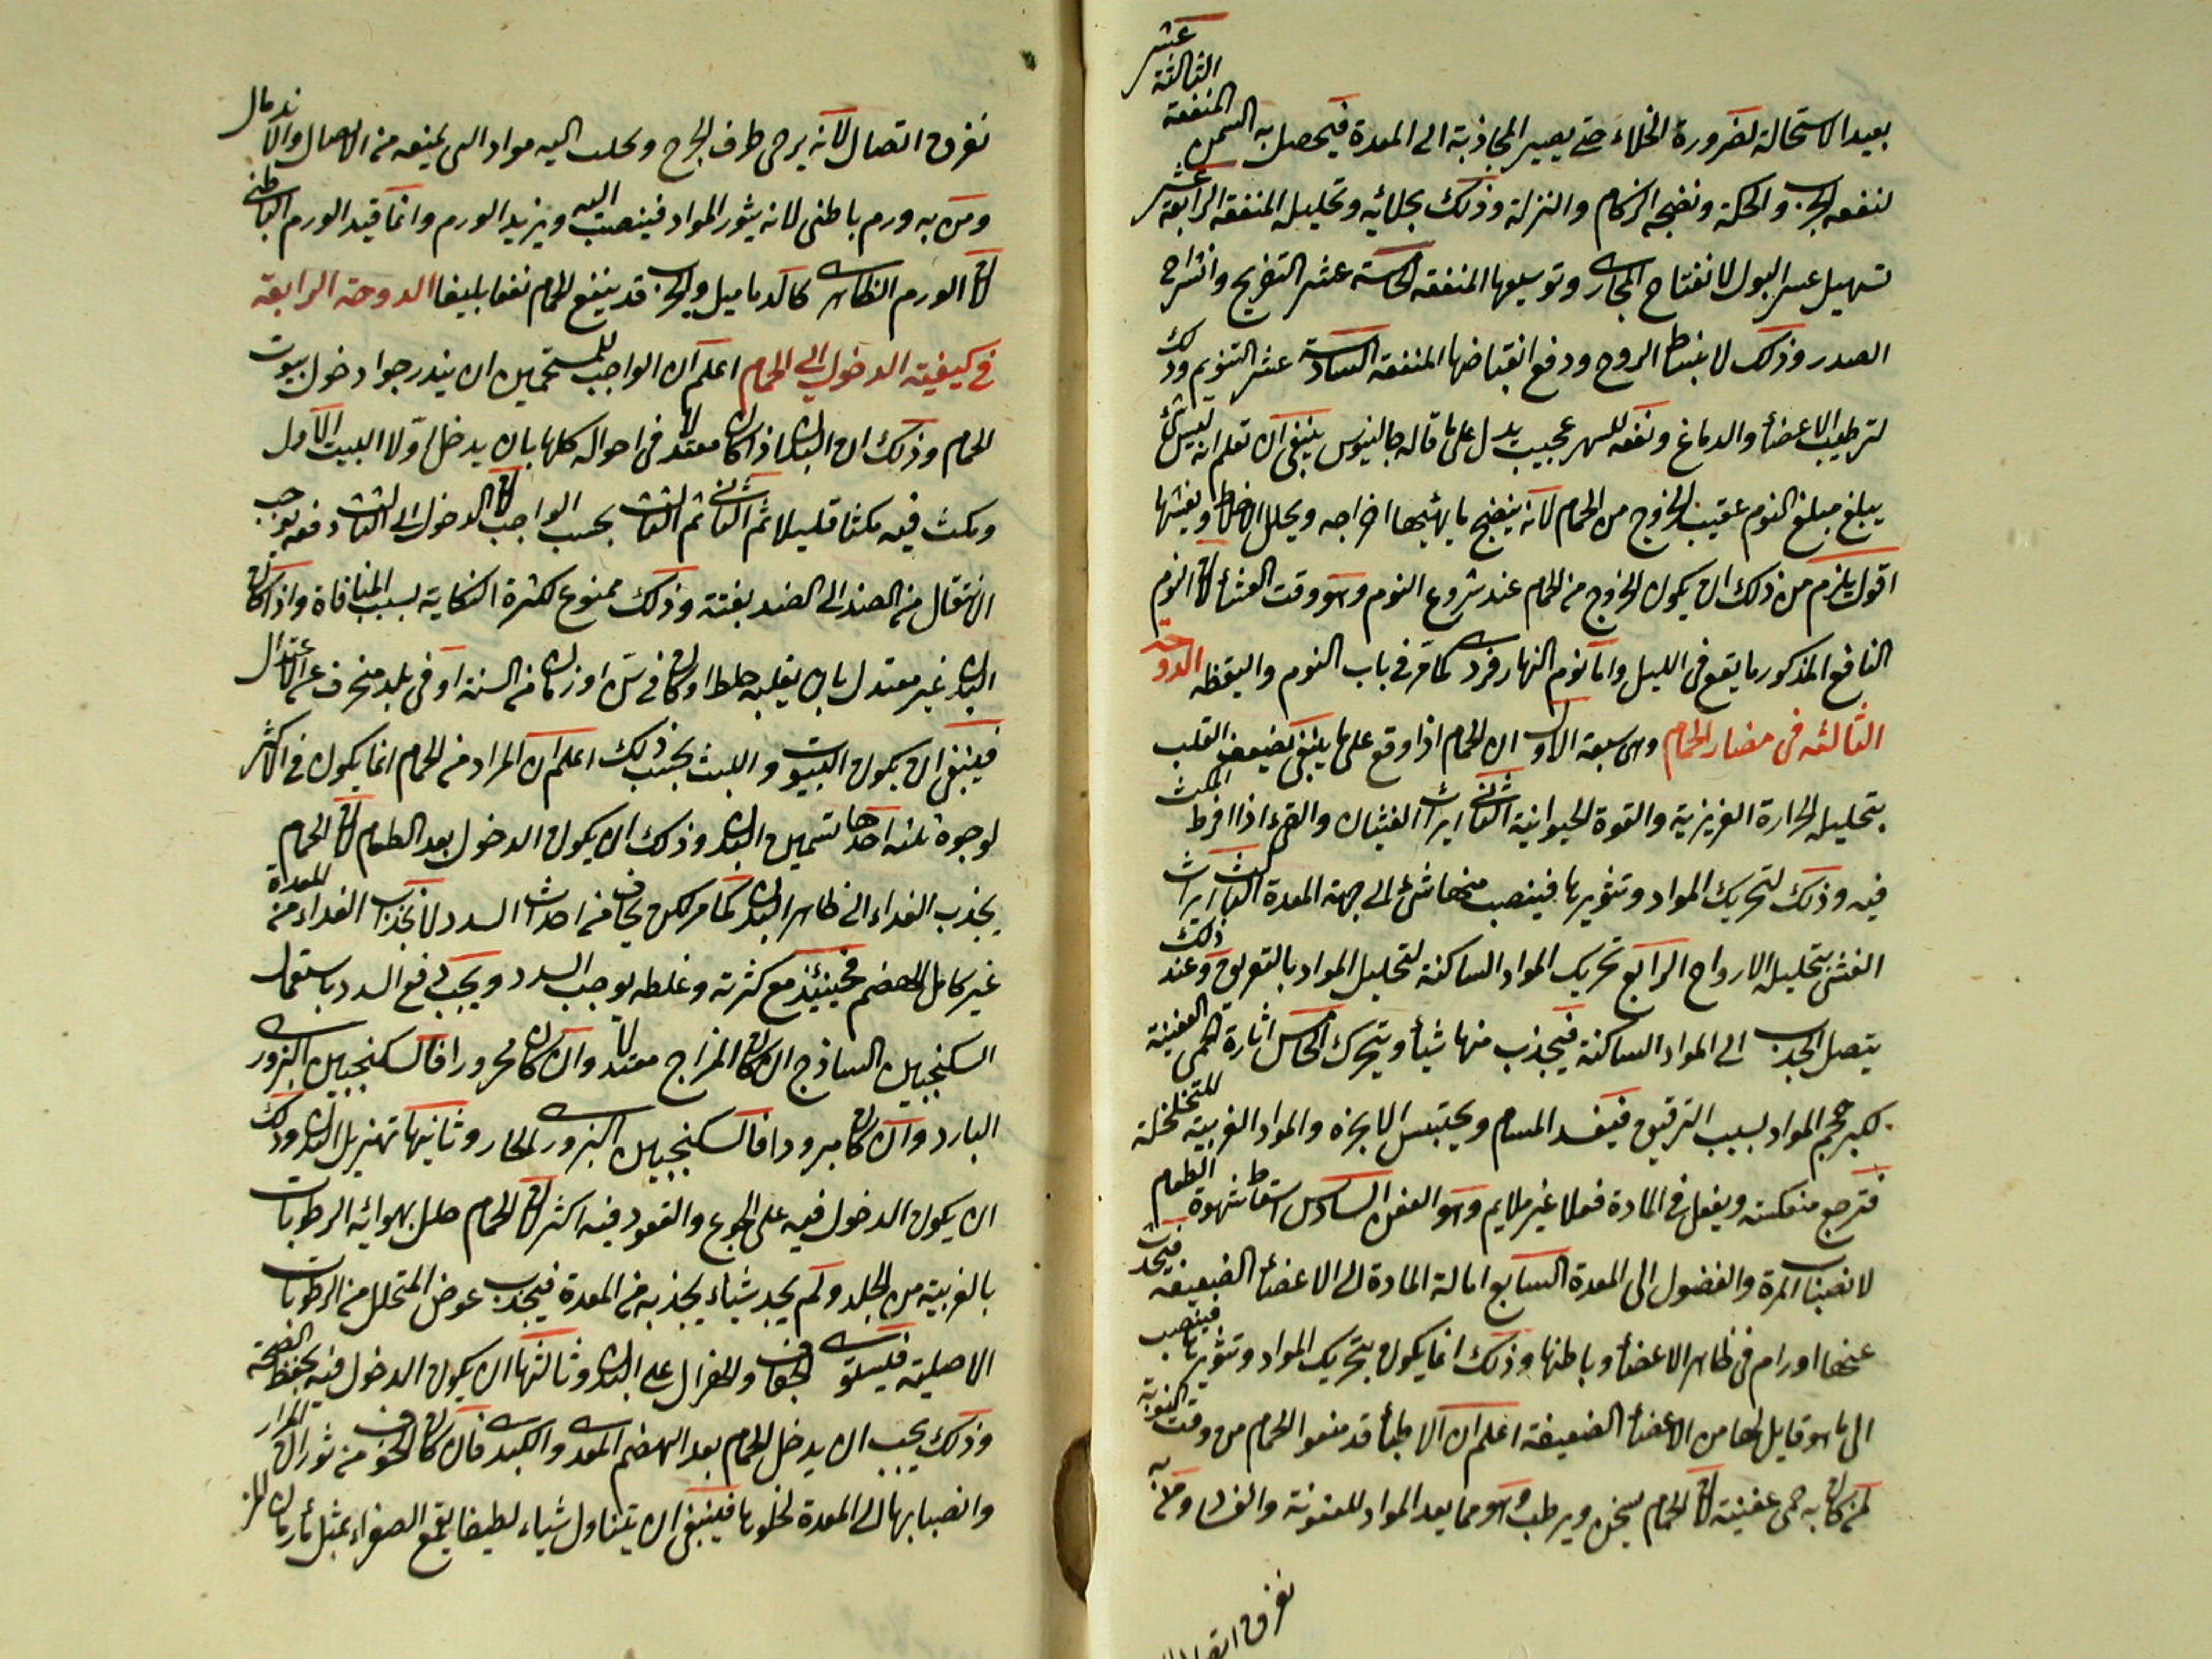 بعيد الاستحالة لضرورة الخلاء حتى يصير المجاذبة الى المعدة فيحصل به السمن المنفعة الثالثة عشر
لنفعه الجرب والحكة ونضجه الزكام والنزلة وذلك بجلائه وتحليله المنفعة الرابعة عشر
تسهيل عسر البول لانفتاح المجارى وتوسيعها المنفعة الخامسة عشر التفريح وانشراح
الصدر وذلك لانبساط الروح ودفع انقباضها المنفعة السادسة عشر التنويم وذلك
لترطيب الاعضاء والدماغ ونفعه للسهر عجيب يدل على ما قاله جالينوس ينبغى ان تعلم انه ليس شئ
يبلغ مبلغ النوم عقيب الخروج من الحمام لانه ينضج ما يهيئها اخراجه ويحلل الاخلاط ويفشها
اقول يلزم من ذلك ان يكون الخروج من الحمام عند شروع النوم وهو وقت العشاء لان النوم
النافع المذكور ما يقع فى الليل واما نوم النهار فردى كما مر فى باب النوم واليقظه الدوحة
الثالثه فى مضار الحمام وهى سبعة الاول ان الحمام اذا وقع على ما ينبغى يضعف القلب
بتحليله الحرارة الغريزية والقوة الحيوانية الثانى ايراث الغثيان والقئ اذا افرط المكث
فيه وذلك لتحريك المواد وتثويرها فينصب منها شئ الى جهة المعدة الثالث ايراث
الغشى بتحليله الارواح الرابع تحريك المواد الساكنة لتحليل المواد بالتعريق وعند ذلك
يتصل الجذب الى المواد الساكنة فيجذب منها شيأ ويتحرك الخامس اثارة الحمى العفنية
لكبر حجم المواد بسبب الترقيق فيفسد المسام ويحتبس الابخرة والمواد الغريبة للتخلخلة
فترجع منعكسة ويفعل فى المادة فعلا غير ملايم وهو العفن السادس اسقاط شهوة الطعام
لانصباب المرة والفضول الى المعدة السابع امالة المادة الى الاعضاء الضعيفه فيحدث
عنها اورام فى ظاهر الاعضاء وباطنها وذلك انما يكون بتحريك المواد وتثويرها فينصب
الى ما هو قابل لها من الاعضاء الضعيفة اعلم ان الاطباء قد منعوا الحمام من وقت النوبة
لمن كان به حمى عفنية لان الحمام يسخن ويرطب وهو مما يعد المواد للعفونة والفساد ومن به
تفرق اتصال
تفرق اتصال لانه يرخى طرف الجرح ويجلب اليه مواد التى يمنعه من الاتصال والاندمال
ومن به ورم باطنى لانه يثور المواد فينصب اليه ويزيد الورم وانما قيد الورم الباطنى
لان الورم الظاهرى كالدماميل والجرب قد ينفع الحمام نفعا بليغا الدوحة الرابعة
فى كيفية الدخول الى الحمام اعلم ان الواجب للمستحمين ان يتدرجوا دخول بيوت
الحمام وذلك ان البدن اذا كان معتدلا فى احواله كلها بان يدخل اولا البيت الاول
ومكث فيه مكثا قليلا ثم الثانى ثم الثالث بحسب الواجب لان الدخول الى الثالث دفعه يوجب
الانتقال من الضد الى الضد بغتة وذلك ممنوع لكثرة النكاية بسبب المنافاة واذا كان
البدن غير معتدل بان يغلبه خلط او كان فى سن او زمان من السنة او فى بلد منحرف عن الاعتدال
فينبغى ان يكون البيوت واللبث بحسب ذلك اعلم ان المراد من الحمام انما يكون فى الاكثر
لوجوه ثلثه احدها تسمين البدن وذلك ان يكون الدخول بعد الطعام لان الحمام
يجذب الغداء الى ظاهر البدن كما مر لكن يخاف من احداث السدد لانجذاب الغداء من المعدة
غير كامل الهضم فحينئذ مع كثرته وغلظه يوجب السدد ويجب دفع السدد باستعمال
السكنجبين الساذج ان كان المزاج معتدلا وان كان محرورا فالسكنجبين البزورى
البارد وان كان مبرودا فالسكنجبين البزورى الحار وثانيها تهزيل البدن وذلك
ان يكون الدخول فيه على الجوع والقعود فيه اكثر لان الحمام حلل بهوائه الرطوبات
بالغريبة من الجلد ولم يجد شياء يجذبه من المعدة فيجذب عوض المتحلل من الرطوبات
الاصلية فيستولى الجفاف والهزال على البدن وثالثها ان يكون الدخول فيه بحفظ الصحة
وذلك يجب ان يدخل الحمام بعد الهضم المعدى والكبدى فان كان الخوف من ثوران المرار
وانصبابها الى المعدة لخلوها فينبغى ان يتناول شياء لطيفا يقمع الصفراء بمثل ماء رمان المز